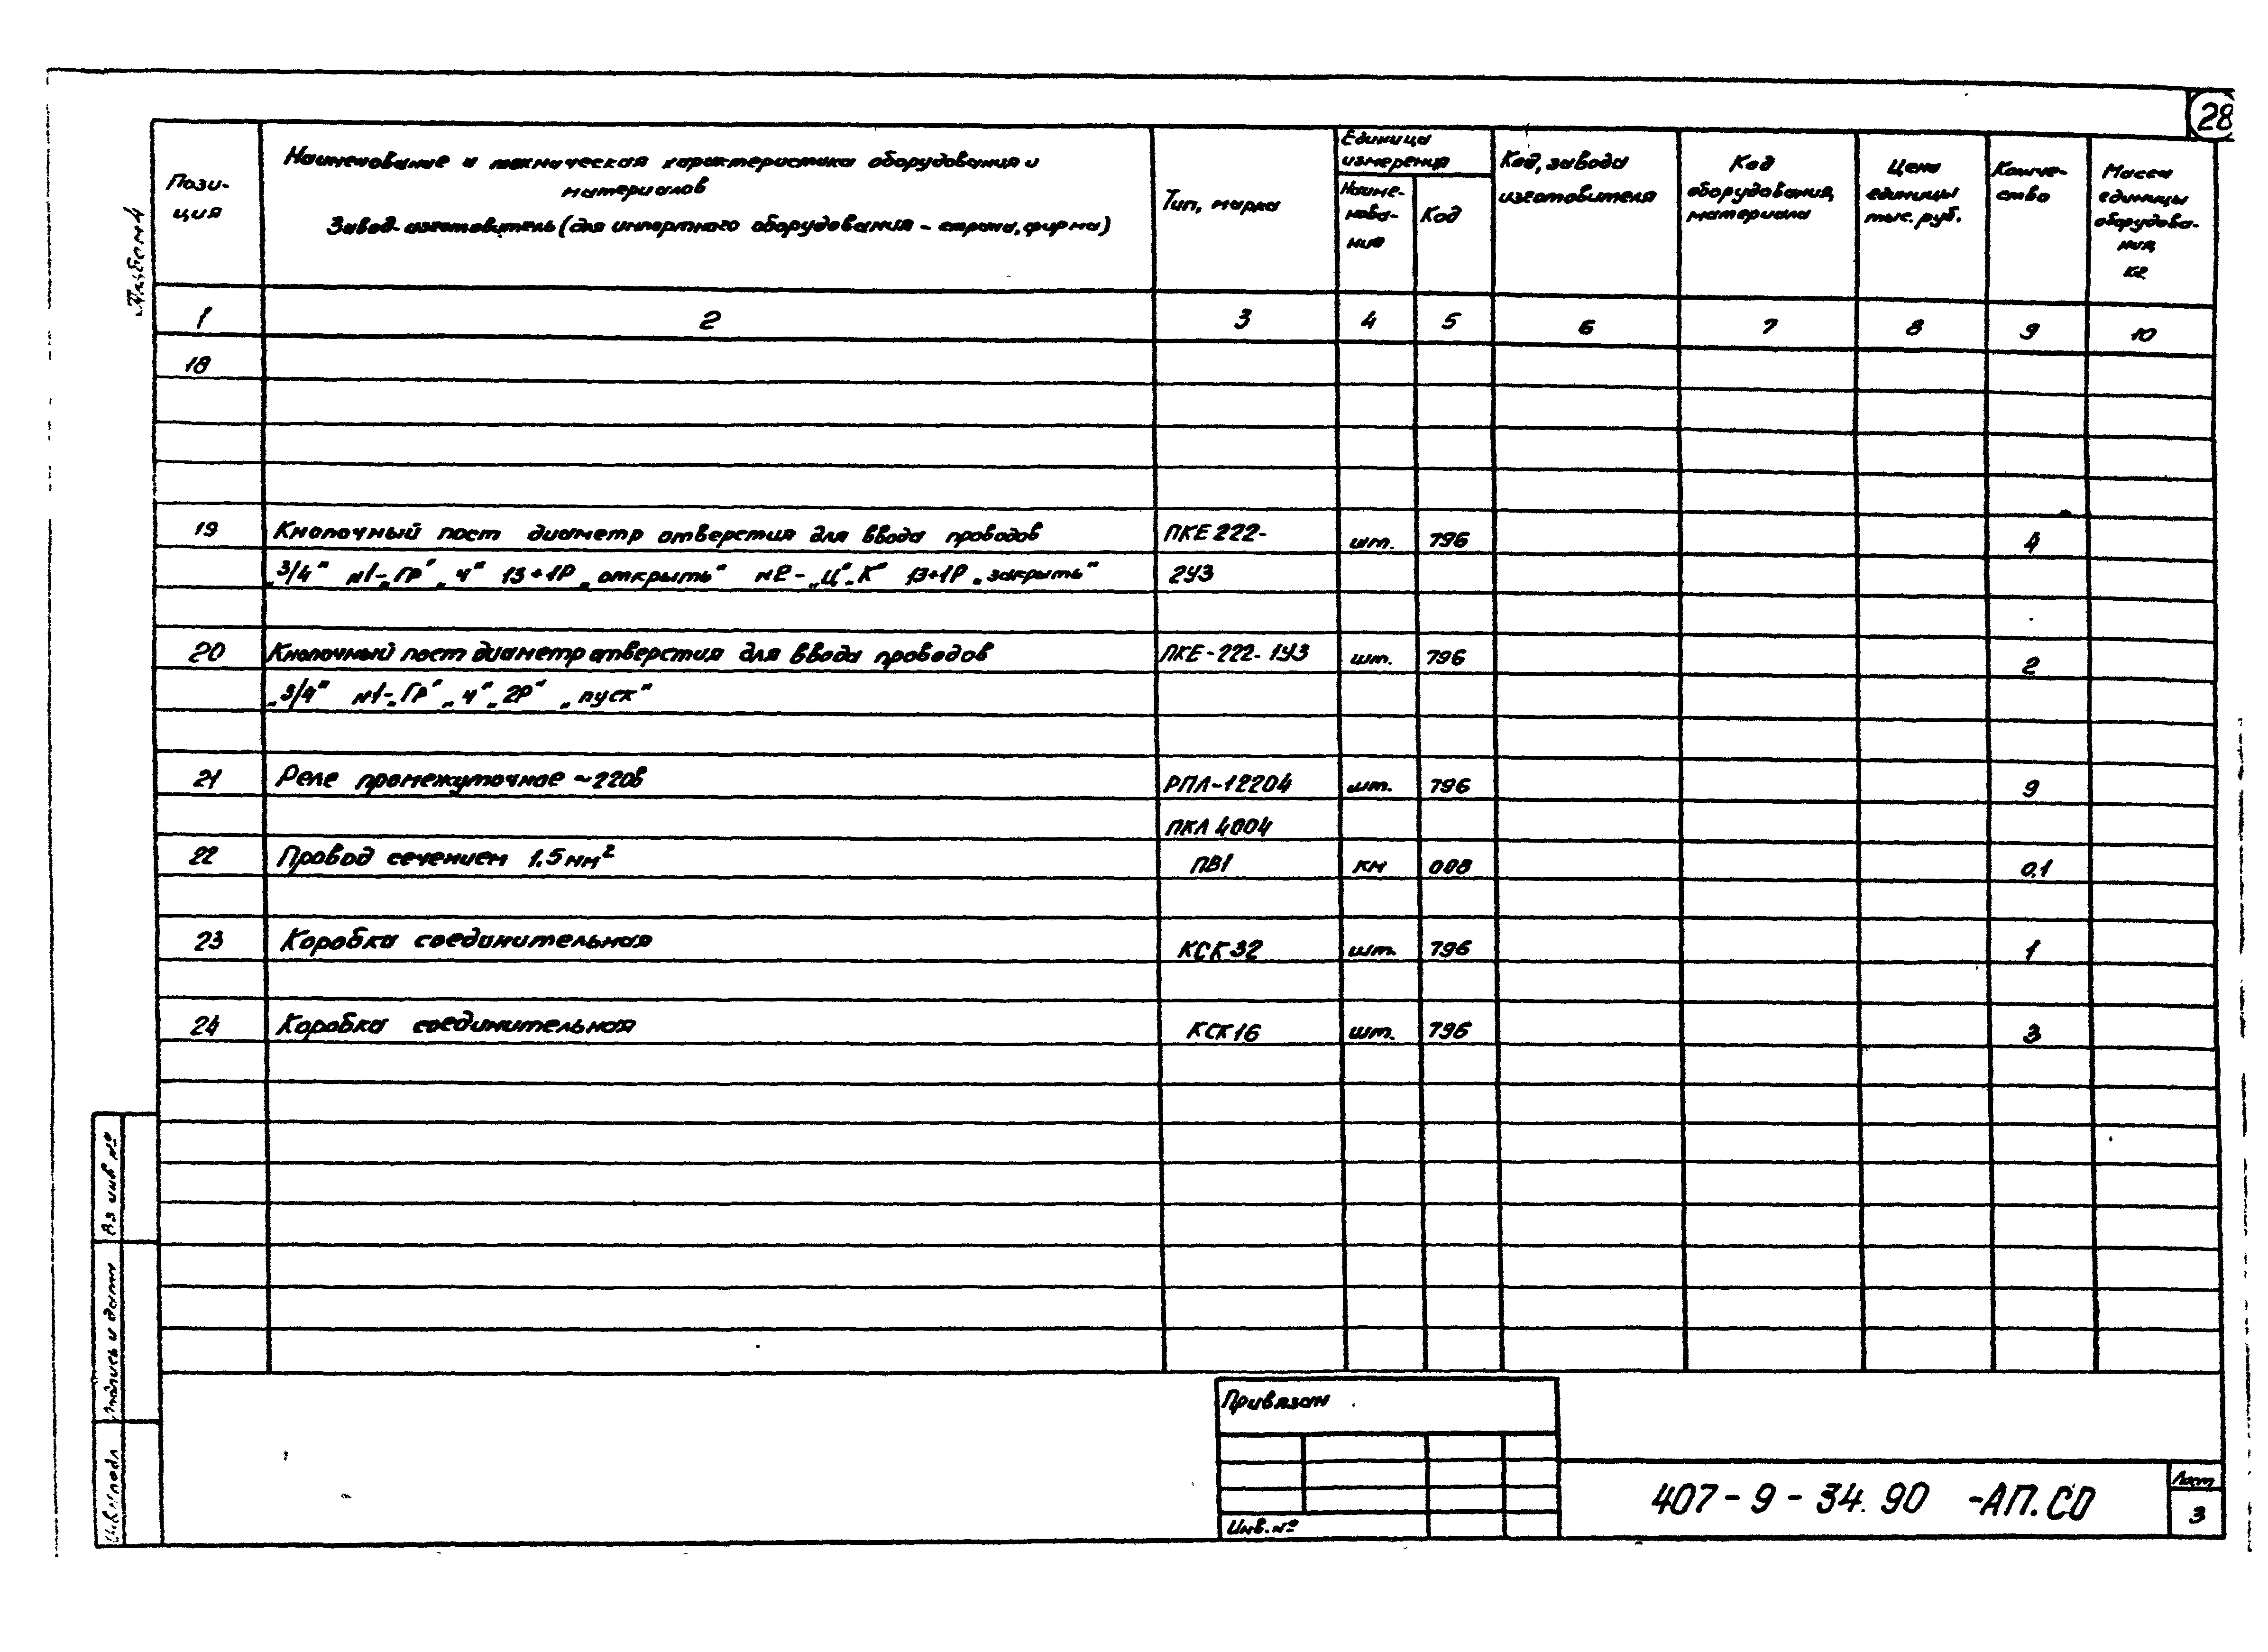 28
Альбом 4
Пози-
ция
Наименование и техническая характеристика оборудования и
материалов
Завод-изготовитель (для импортного оборудования - страна, фирма)
Тип, марка
Единица
измерения
Наиме-
нова-
ние
Код
Код, завода
изготовителя
Код
оборудования,
материала
Цена
единицы
тыс. руб.
Количе-
ство
Масса
единицы
оборудова-
ния,
кг
1 2 3 4 5 6 7 8 9 10
18
19 Кнопочный пост диаметр отверстия для ввода проводов ПКЕ 222- шт. 796 4
„3/4" №1-„ГР" „Ч" 13+1Р „открыть" №2-„Ц"„К" 13+1Р „закрыть" 2У3
20 Кнопочный пост диаметр отверстия для ввода проводов ПКЕ-222-1У3 шт. 796 2
„3/4" №1-„ГР" „Ч" „2Р" „пуск"
21 Реле промежуточное ~220в РПЛ-12204 шт. 796 9
ПКЛ 4004
22 Провод сечением 1.5мм² ПВ1 км 008 0,1
23 Коробка соединительная КСК32 шт. 796 1
24 Коробка соединительная КСК16 шт. 796 3
Вз инв №
Подпись и дата
Инв № подл
Привязан
Инв. №
407-9-34.90 -АП.СО
Лист
3